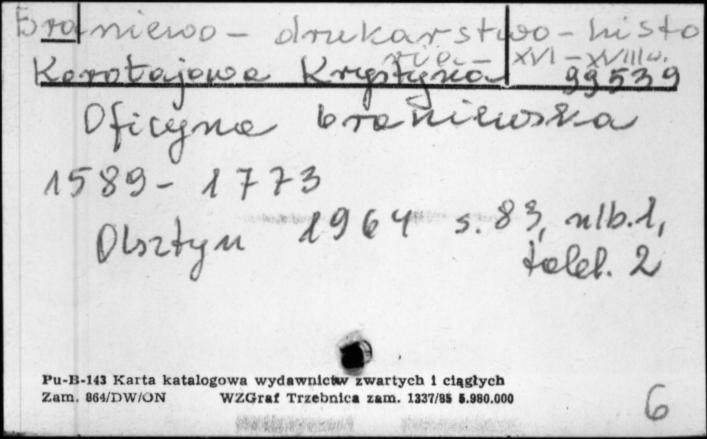 Braniewo - drukarstwo - histo
ria - XVI - XVIII w.
Korotajowa Krystyna 99539
Oficyna braniewska
1589 - 1773
Olsztyn 1964 s. 83, nlb. 1,
tabl. 2
Pu-B-143 Karta katalogowa wydawnictw zwartych i ciągłych
Zam. 864/DW/ON WZGraf Trzebnica zam. 1337/85 5.980.000
6